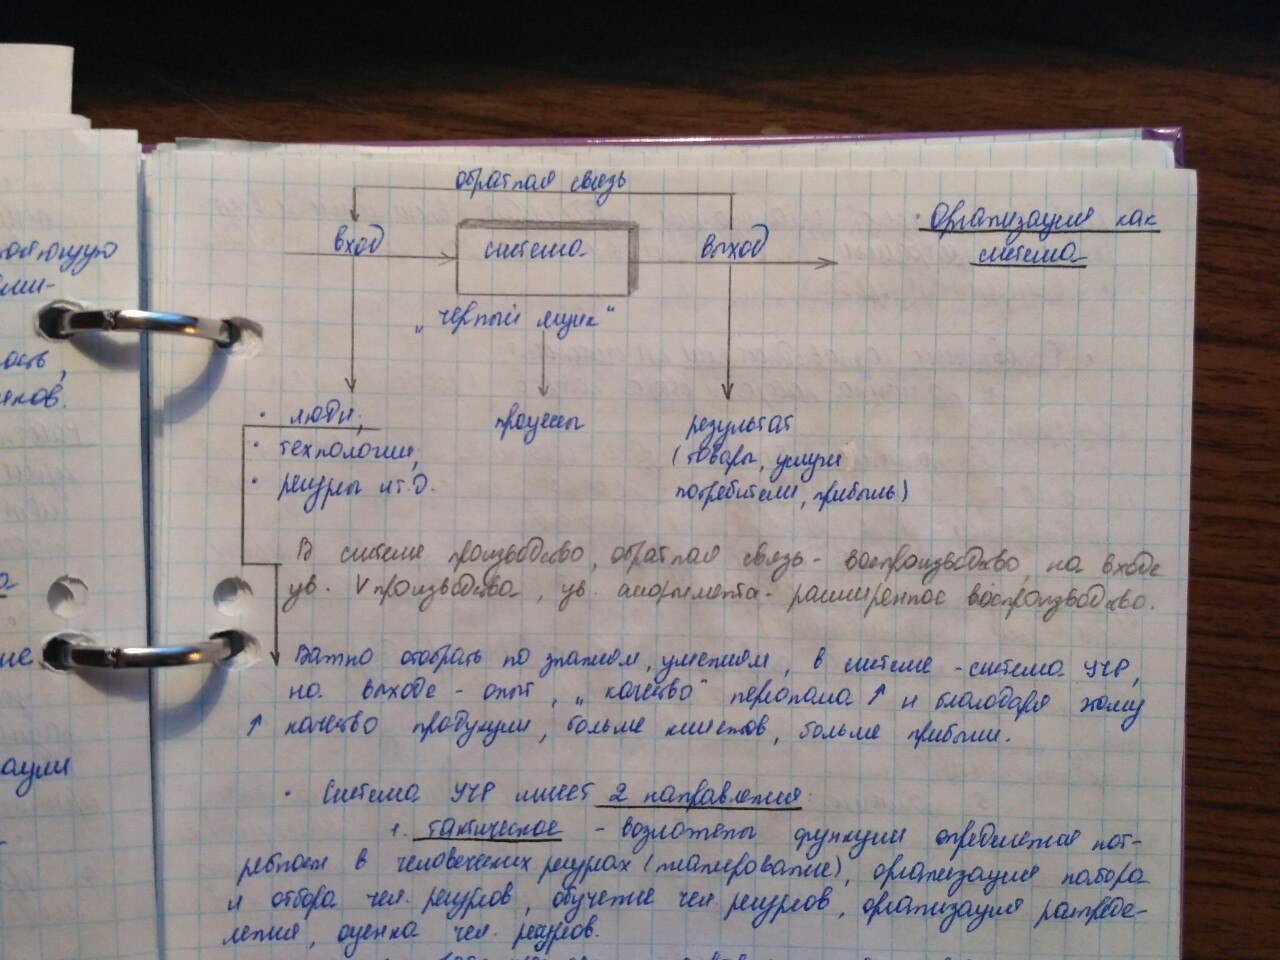 обратная связь
вход
система
выход
· Организация как
система
„черный ящик"
· люди;
· технологии,
· ресурсы и т.д.
процессы
результат
(товары, услуги
потребители, прибыль)
В системе производство, обратная связь - воспроизводство, на входе
ув. V производства, ув. ассортимента - расширенное воспроизводство.
Важно отобрать по знаниям, умениям, в системе - система УЧР,
на выходе - опыт, „качество" персонала ↑ и благодаря этому
↑ качество продукции, больше клиентов, больше прибыли.
· Система УЧР имеет 2 направления:
1. тактическое - возложены функции определения пот-
ребности в человеческих ресурсах (планирование), организация набора
и отбора чел. ресурсов, обучение чел. ресурсов, организация распреде-
ления, оценка чел. ресурсов.
ающую
ость,
ков.
ие
ации